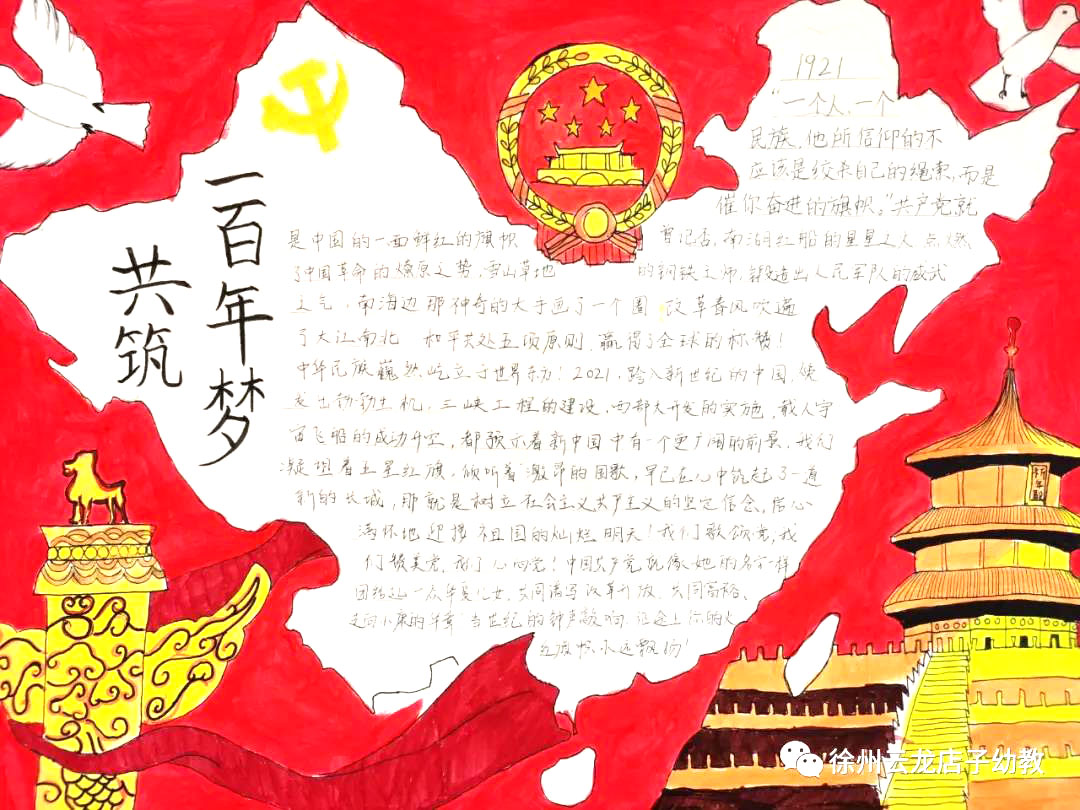 一百年梦
共筑
1921
“一个人、一个
民族，他所信仰的不
应该是绞杀自己的绳索，而是
催你奋进的旗帜。”共产党就
是中国的一面鲜红的旗帜
曾记否，南湖红船的星星之火，点燃
了中国革命的燎原之势，雪山草地
的钢铁之师，锻造出人民军队的威武
之气，南海边那神奇的大手画了一个圈 改革春风吹遍
了大江南北 和平共处五项原则，赢得了全球的称赞！
中华民族巍然屹立于世界东方！2021，跨入新世纪的中国，焕
发出勃勃生机，三峡工程的建设，西部大开发的实施，载人宇
宙飞船的成功升空，都预示着新中国中有一个更广阔的前景，我们
凝望着五星红旗，倾听着激昂的国歌，早已在心中筑起了一道
新的长城，那就是树立社会主义共产主义的坚定信念，信心
满怀地迎接祖国的灿烂明天！我们歌颂党，我
们赞美党，
中国共产党就像她的名字一样
团结起一众华夏儿女，共同谱写改革开放、共同富裕、
走向小康的华章 当世纪的钟声敲响
永远飘扬！
祈年殿
徐州云龙店子幼教